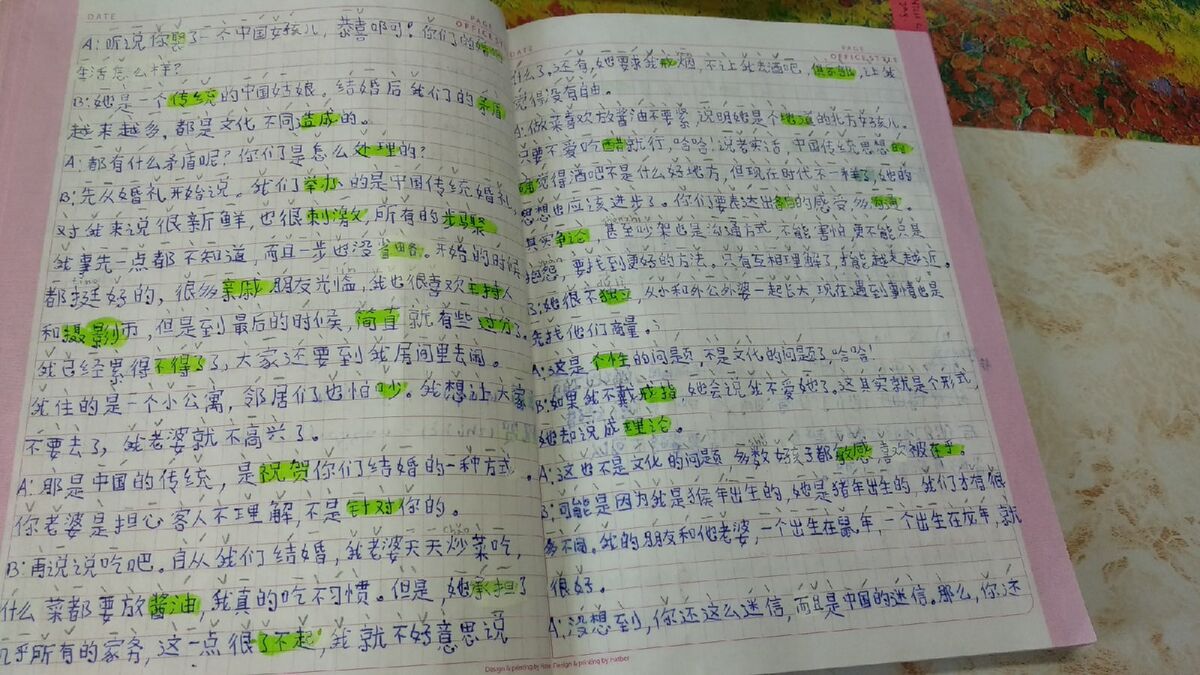 DATE
PAGE
OFFICEST
A：听说你娶了一个中国女孩儿，恭喜啊！你们的
生活怎么样？
B：她是一个传统的中国姑娘。结婚后我们的矛盾
越来越多，都是文化不同造成的。
A：都有什么矛盾呢？你们是怎么处理的？
B：先从婚礼开始说。我们举办的是中国传统婚礼，
对我来说很新鲜，也很刺激，所有的步骤
我事先一点都不知道，而且一步也没省略。开始的时候
都挺好的，很多亲戚朋友光临，我也很喜欢主持人
和摄影师，但是到最后的时候，简直就有些过分了。
我已经累得不得了了，大家还要到我房间里去闹。
我住的是一个小公寓，邻居们也怕吵。我想让大家
不要去了，我老婆就不高兴了。
A：那是中国的传统，是祝贺你们结婚的一种方式。
你老婆是担心客人不理解，不是针对你的。
chǎo
B：再说说吃吧。自从我们结婚，我老婆天天炒菜吃，
什么菜都要放酱油，我真的吃不习惯。但是，她承担了
几乎所有的家务，这一点很了不起，我就不好意思说
Design & printing by
DATE
PAGE
OFFICEST
什么了。还有，她要求我戒烟，不让我去酒吧，让我
觉得没有自由。
A：做菜喜欢放酱油不要紧，说明她是个地道的北方女孩儿。
只要不爱吃醋就行，哈哈！说老实话，中国传统思想的
觉得酒吧不是什么好地方，但现在时代不一样了，她的
思想也应该进步了。你们要表达出自己的感受，多沟通。
其实争论，甚至吵架也是沟通方式，不能害怕，更不能只是
抱怨，要找到更好的方法。只有互相理解了，才能越来越近。
B：她很不独立，从小和外公外婆一起长大，现在遇到事情也是
先找他们商量。
A：这是个性的问题，不是文化的问题了，哈哈！
B：如果我不戴戒指，她会说我不爱她了。这其实就是个形式，
她却说成理论。
A：这也不是文化的问题，多数女孩子都敏感，喜欢被在乎。
B：可能是因为我是猴年出生的，她是猪年出生的，我们才有很
多不同。我的朋友和他老婆，一个出生在鼠年，一个出生在龙年，就
很好。
A：没想到，你还这么迷信，而且是中国的迷信。那么，你还
Design & printing by Hatber